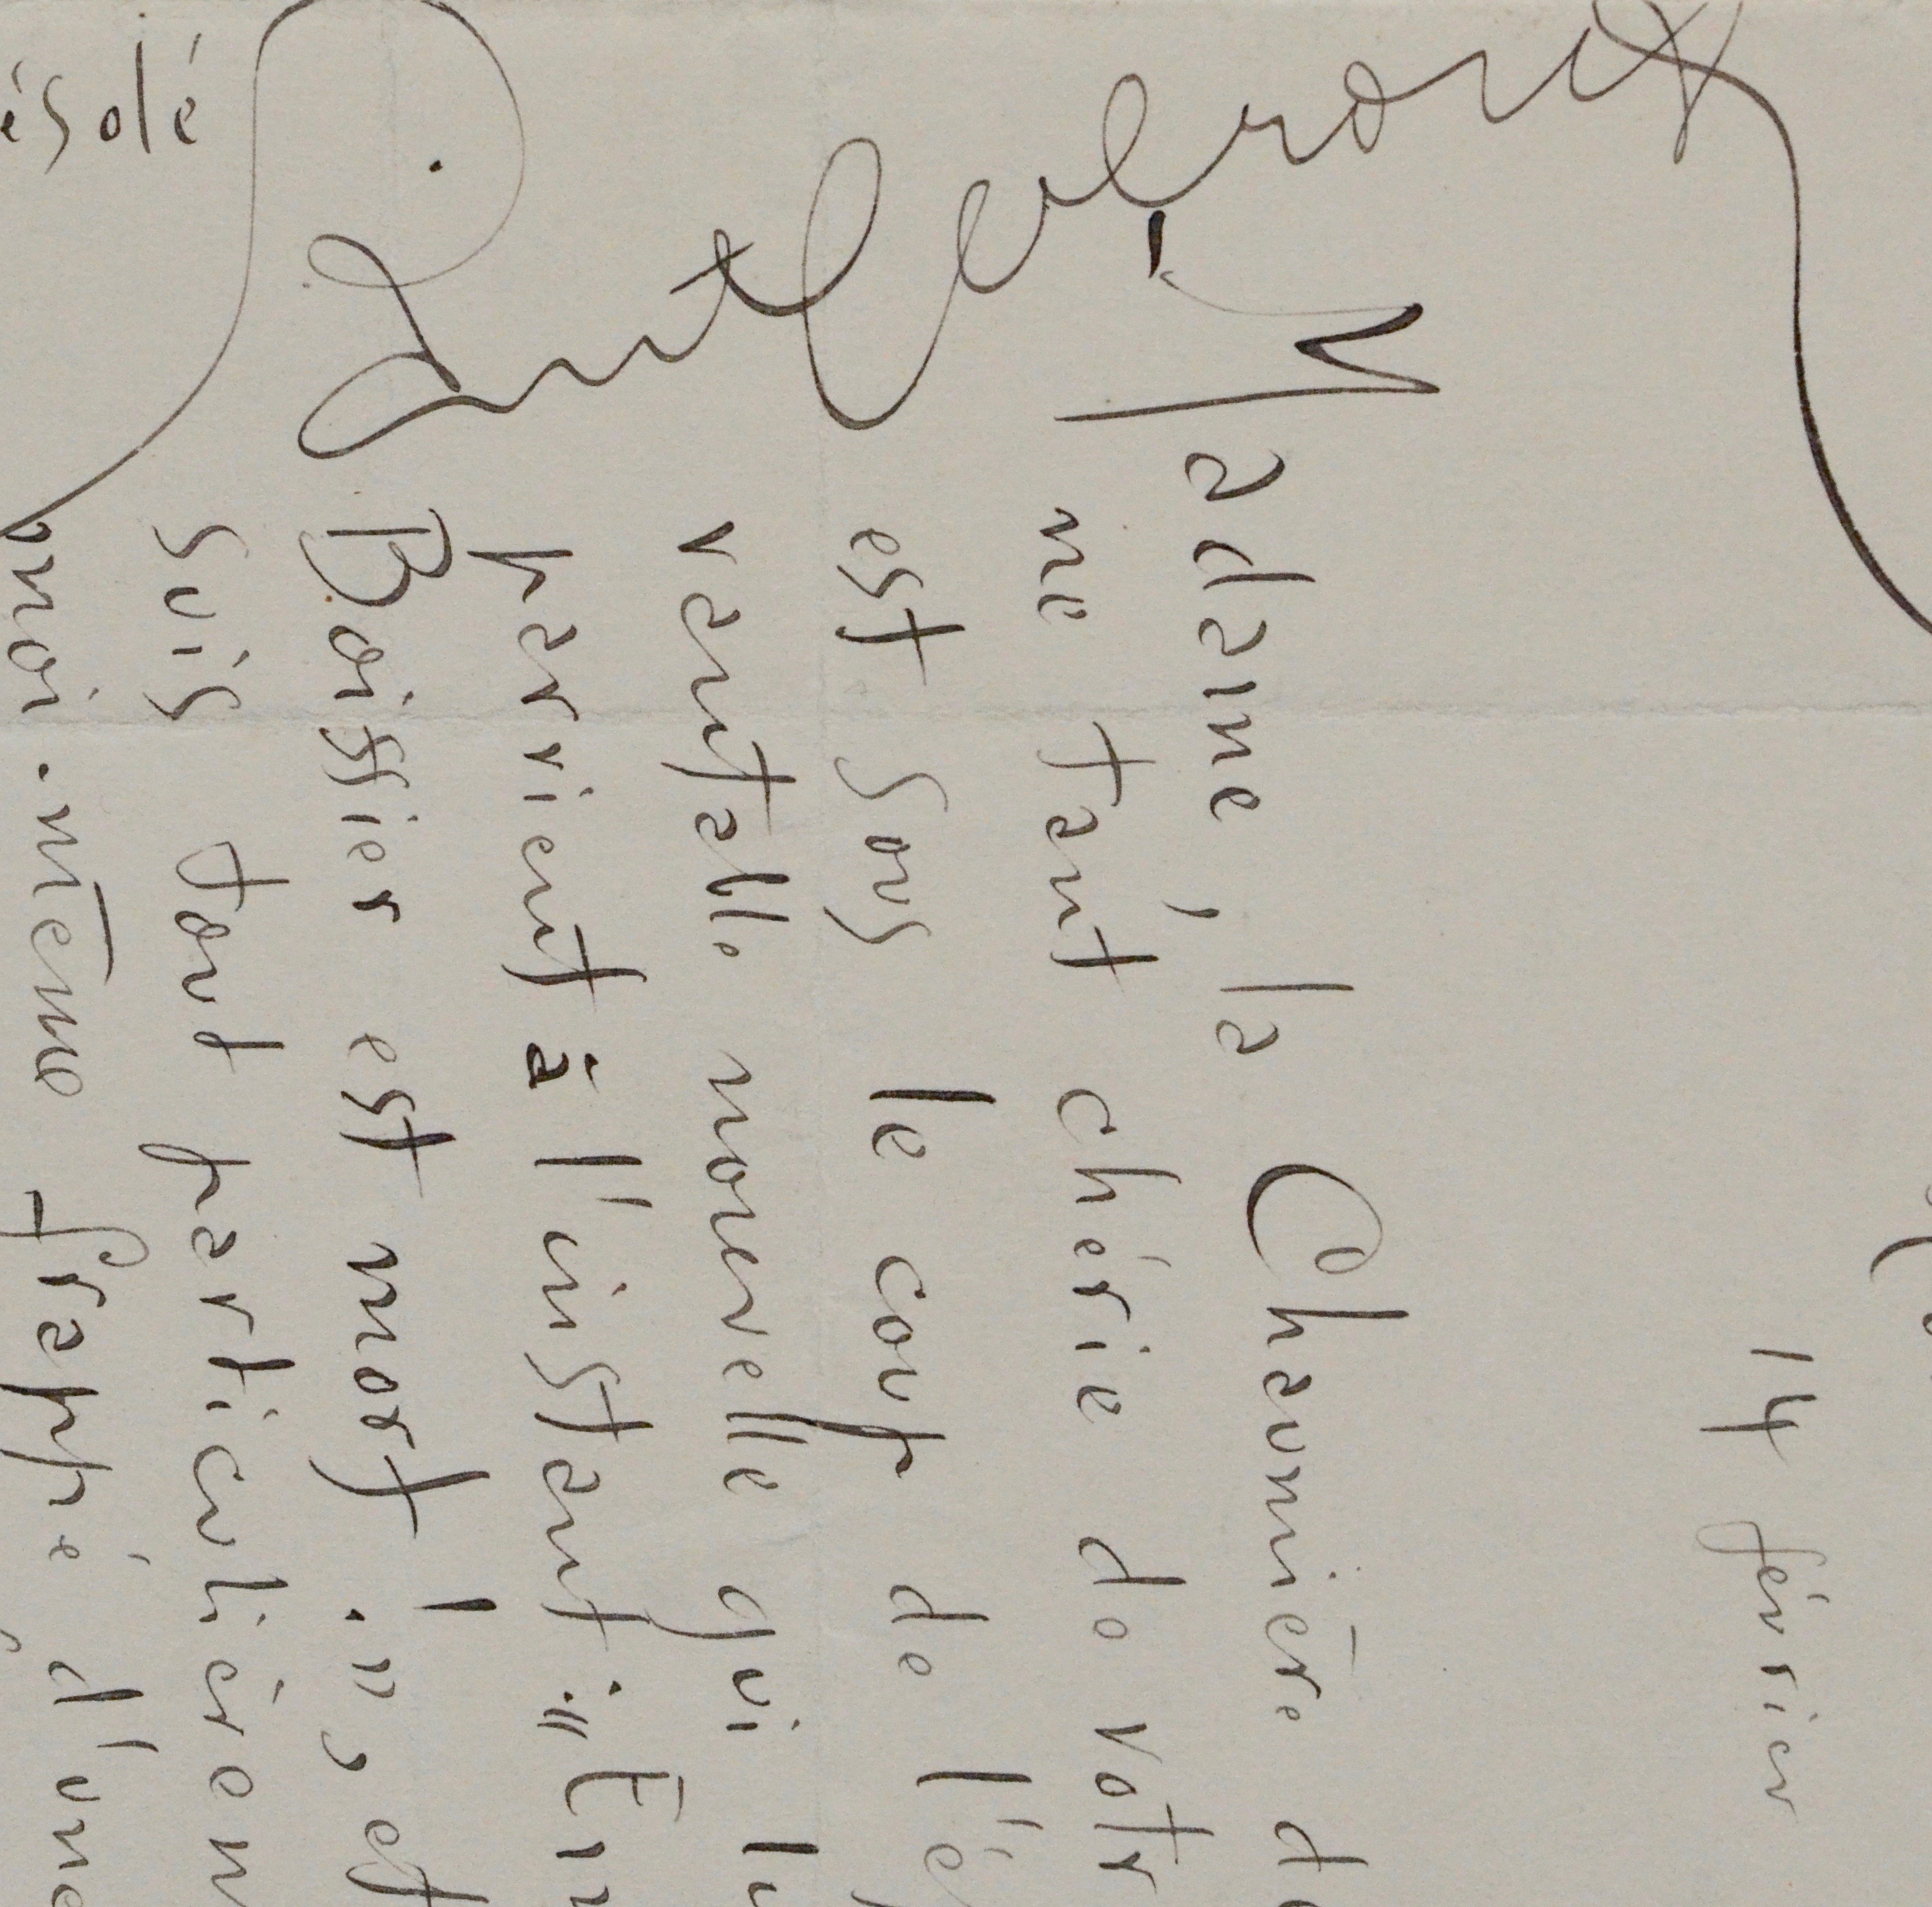 14 février
Madame, la Chaumière d
ne tant chérie de votr
est sous le coup de l'é
vantable nouvelle qui lu
parvient à l'instant : "Em
Boissier est mort ! . ", et
suis tout particulièrem
moi-même frappé d'une
ésolé